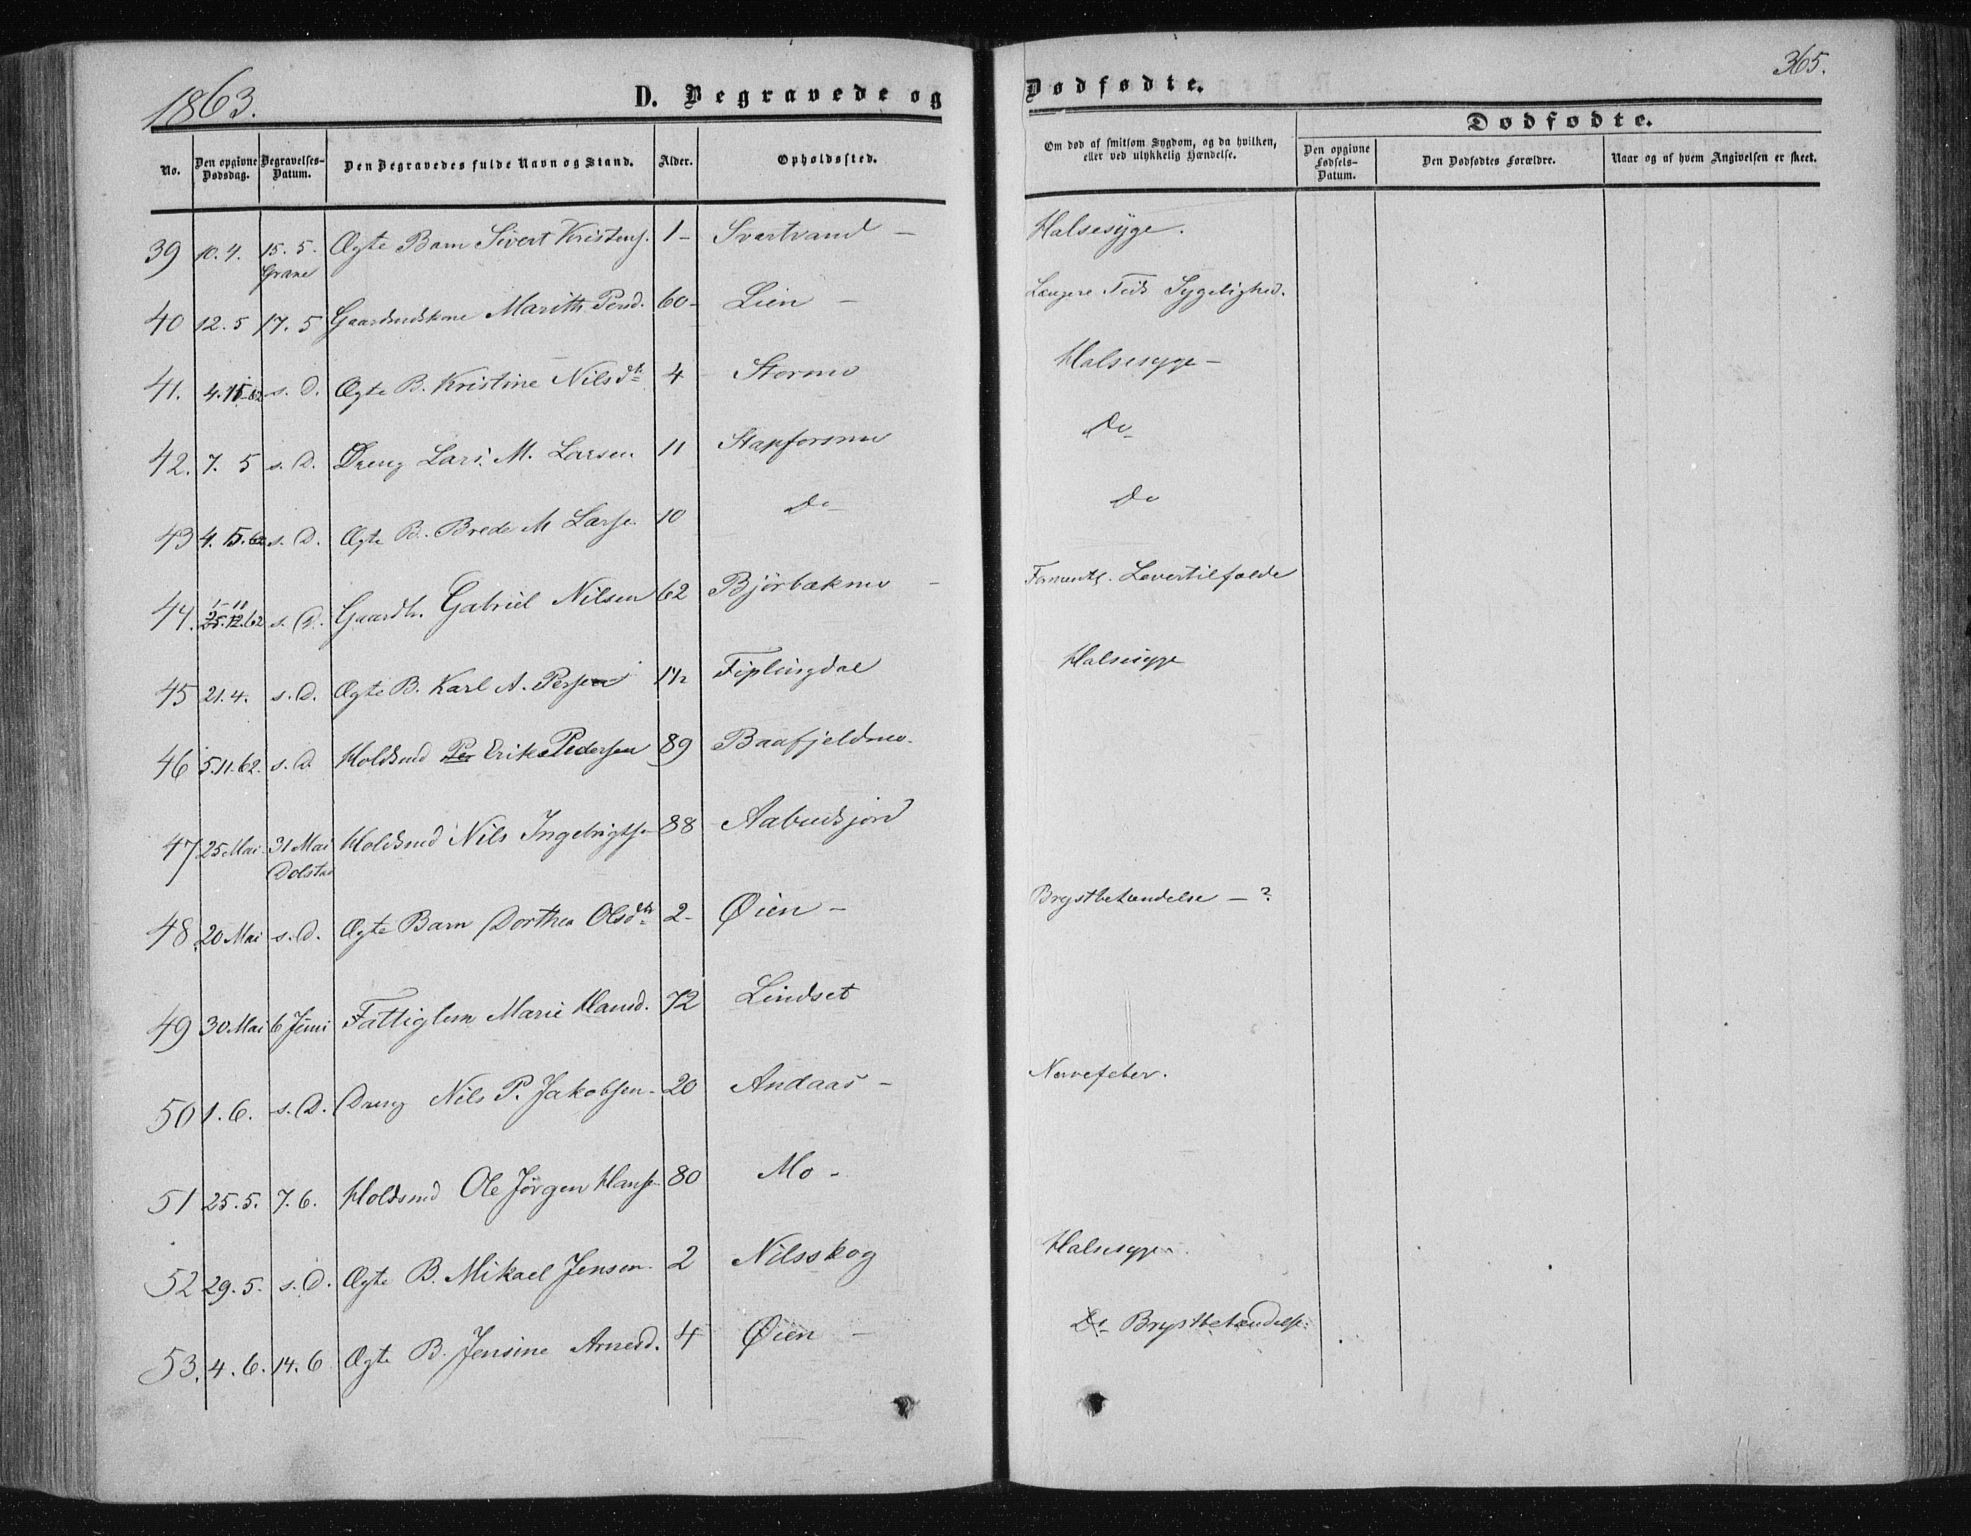 1863.
D. Begravede og
Dødfødte.
365.
Dødfødte.
No.
Den opgivne Dødsdag.
Begravelses-Datum.
Den Begravedes fulde Navn og Stand.
Alder.
Opholdssted.
Om død af smitsom Sygdom, og da hvilken, eller ved ulykkelig Hændelse.
Den opgivne Fødsels-Datum.
Den Dødfødtes Forældre.
Naar og af hvem Angivelsen er skeet.
39 10.4. 15.5. Grane Ægte Barn Sivert Kristens. 1- Svartvand - Halsesyge.
40 12.5 17.5 Gaardmdskone Marith Persd. 60- Lien - Længere Tids Sygelighed.
41. s. D. Ægte B. Kristine Nilsdtr 4 Stormo Halsesyge -
42. 7.5 s. D. Dreng Lars. M. Larsen 11 Stapforsmo Do
43 s. D. Ægte B. Brede M Larss. 10 Do Do
44. s. D. Gaardbr. Gabriel Nilsen 62 Bjørbækmo - Levertilfælde
45 21.4. s. D. Ægte B. Karl A. Persen Fiplingdal Halsesyge
46 5.11.62. s. D. Holdsmd Per Erik Pedersen 89 Baafjeldmo.
47 25 Mai 31 Mai Dolstad Holdsmd Nils Ingebrigtss- 88
48 20 Mai s. D. Ægte Barn Dorthea Olsdtr 2- Øien - Brystbetændelse - ?
49 30 Mai 6 Juni Fattiglem Marie Hansd. 72 Lindset
50 1.6. s. D. Dreng Nils P. Jakobsen. 20 Andaas - Nervefeber.
51 25.5. 7.6. Holdsmd Ole Jørgen Hanss- 80 Mo -
52 29.5. s. D. Ægte B. Mikael Jensen. 2 Nilsskog Halsesyge.
53. 4.6. 14.6 Ægte B. Jensine Arnesd. 4 Øien - Do Brystbetændelse.